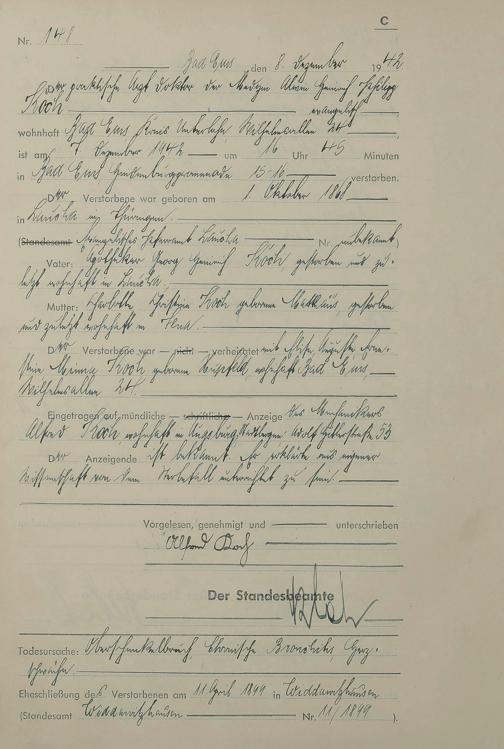 C
Nr. 148
Bad Ems, den 8. Dezember 1942
Der praktische Arzt Doktor der Medizin Heinrich Philipp
Koch evangelisch
wohnhaft Bad Ems, Kreis Unterlahn, Wilhelmsallee 24
ist am 7. Dezember 1942 um 16 Uhr 45 Minuten
in Bad Ems 15-16 verstorben.
Der Verstorbene war geboren am 1. Oktober 1868
in Lauscha in Thüringen.
(Standesamt Evangelisches Pfarramt Lauscha Nr. unbekannt
Vater: Apotheker Georg Heinrich Koch gestorben und zu-
letzt wohnhaft in Lauscha.
Mutter: Charlotte Koch geborene gestorben
und zuletzt wohnhaft in Jena.
Der Verstorbene war — nicht — verheiratet mit
Minna Koch geborene wohnhaft Bad Ems,
Wilhelmsallee 24.
Eingetragen auf mündliche — schriftliche — Anzeige des
Alfred Koch wohnhaft in Augsburg, Adolf Hitlerstraße 53
Der Anzeigende ist bekannt. Er erklärte aus eigener
Wissenschaft von dem Sterbefall unterrichtet zu sein.
Vorgelesen, genehmigt und unterschrieben
Alfred Koch
Der Standesbeamte
Todesursache: Oberschenkelbruch, chronische Bronchitis, Herz-
schwäche
Eheschließung des Verstorbenen am 11. April 1899 in Widdershausen
(Standesamt Widdershausen Nr. 11/1899 ).